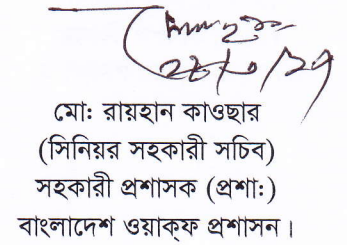 মো: রায়হান কাওছার
(সিনিয়র সহকারী সচিব)
সহকারী প্রশাসক (প্রশা:)
বাংলাদেশ ওয়াক্‌ফ প্রশাসন।